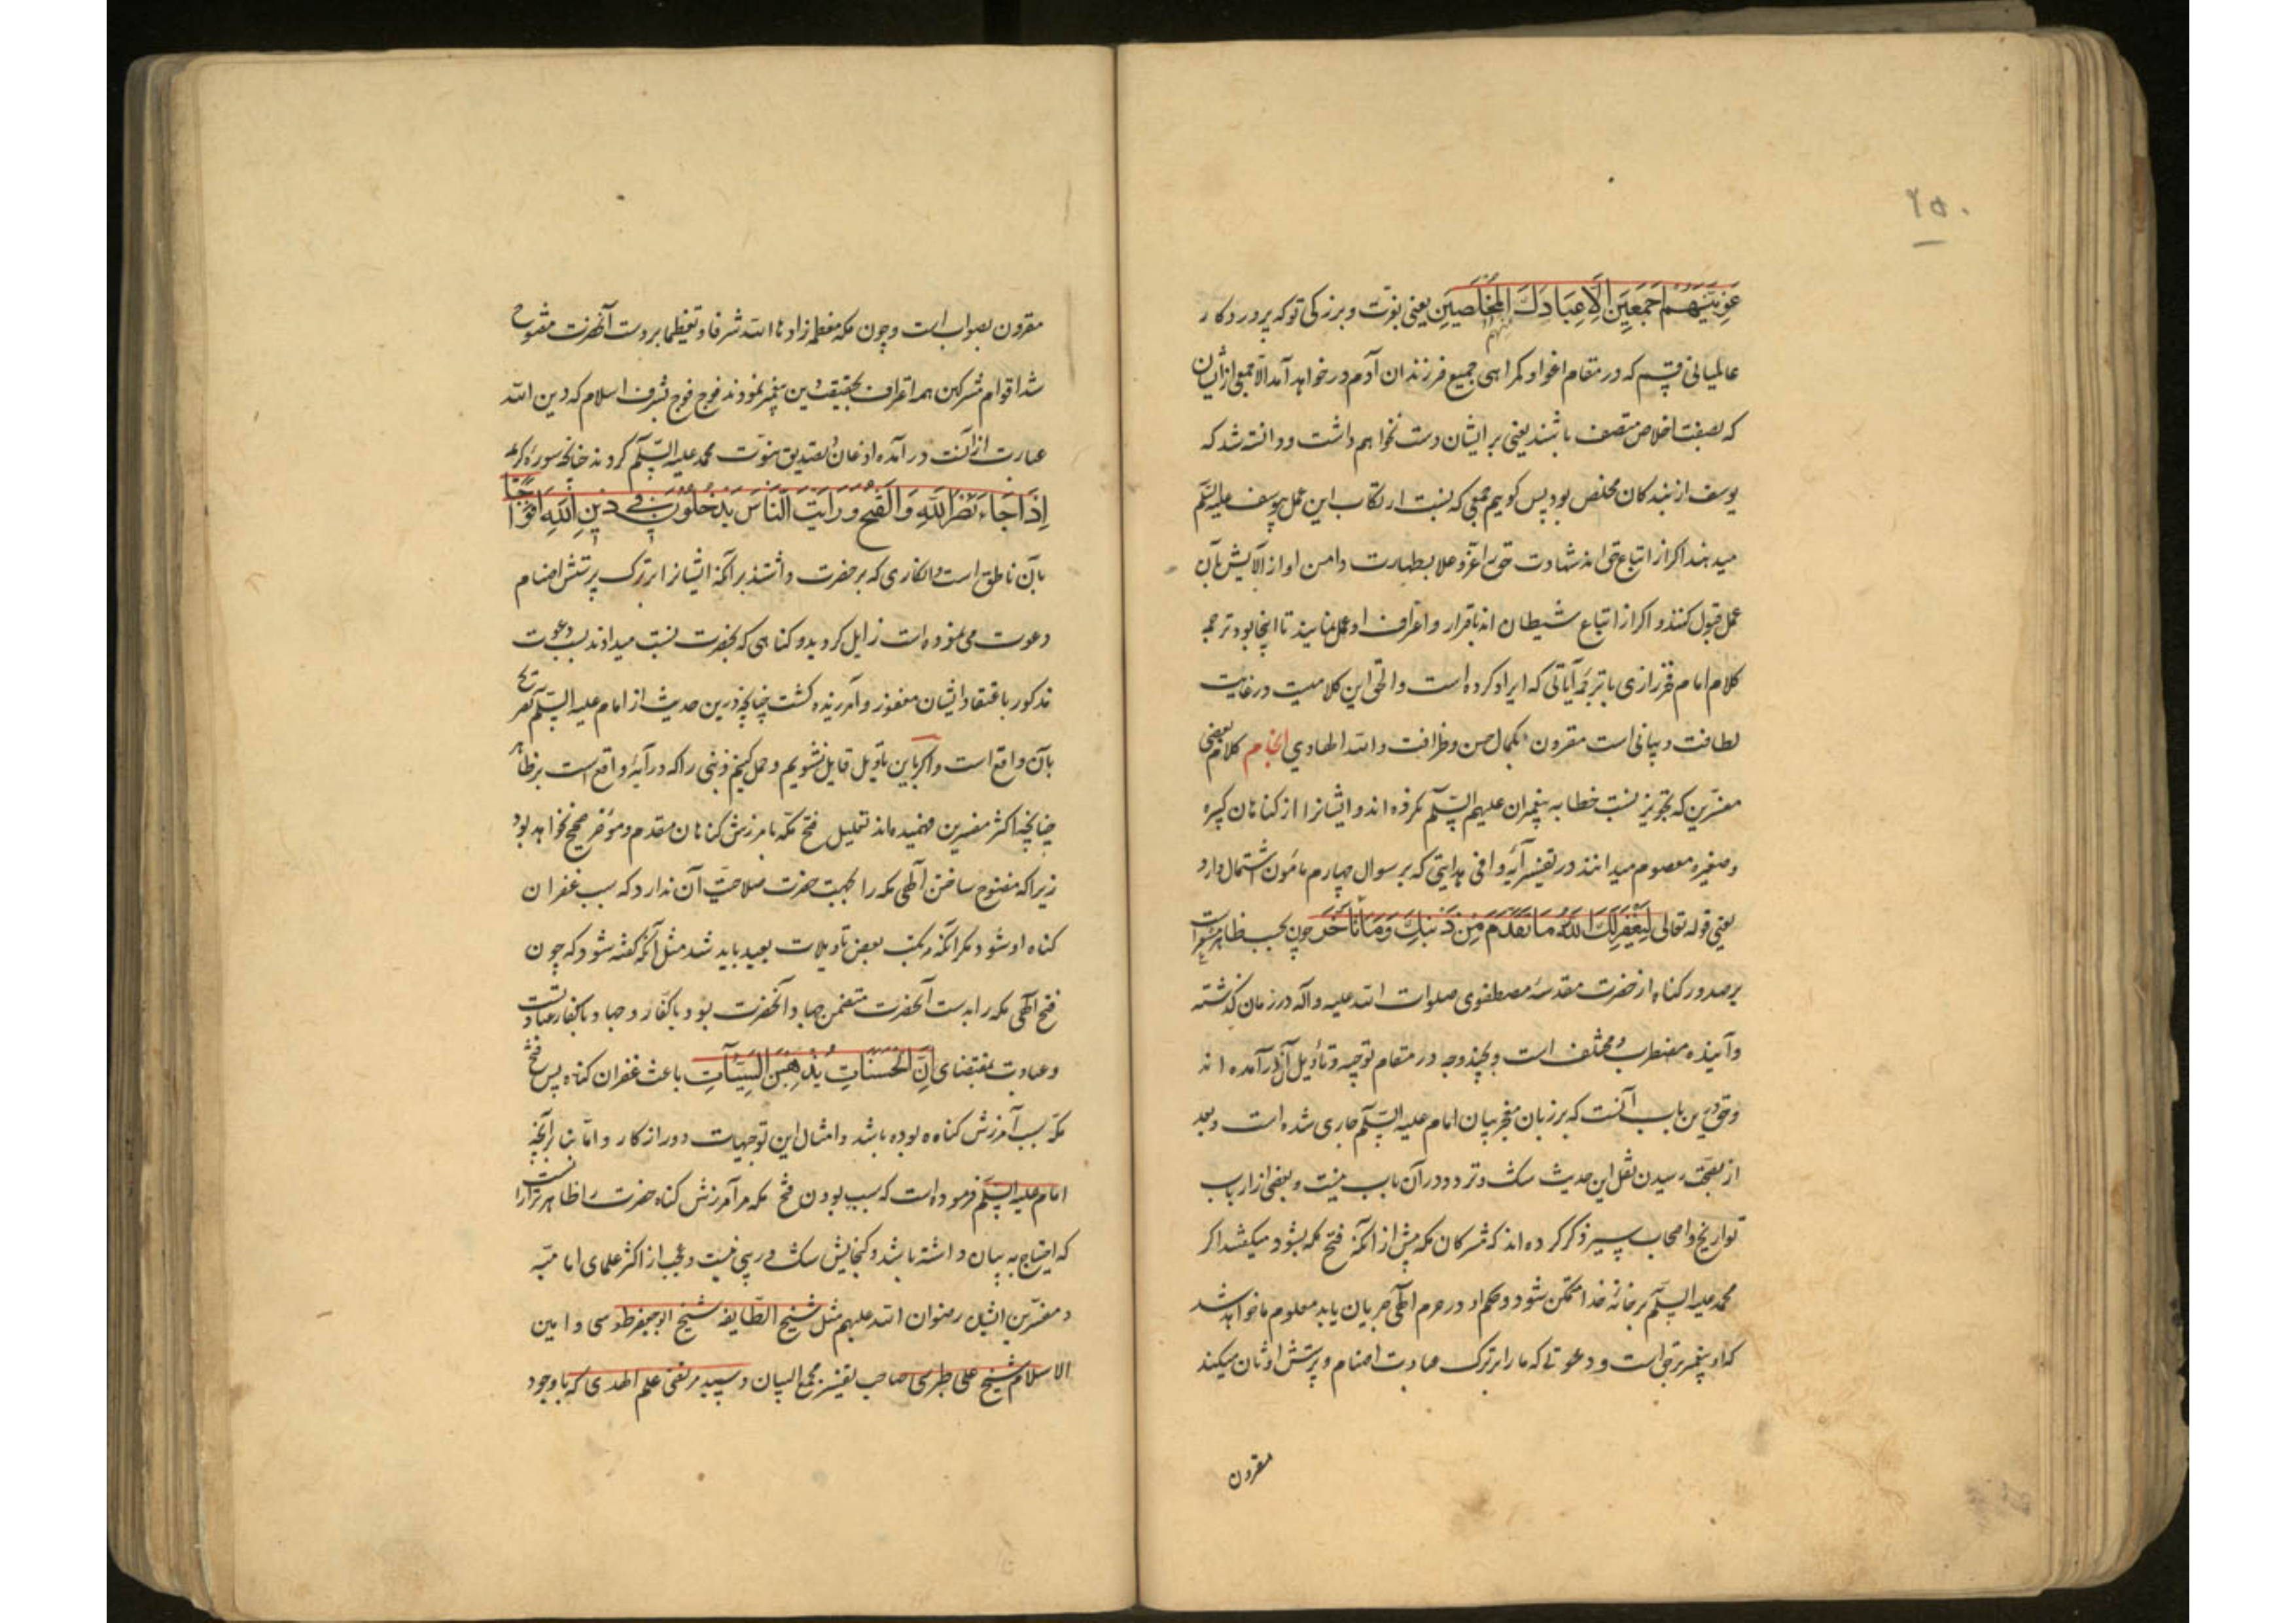 ۲۵۰
غوینهم اجمعین الا عبادک منهم المخلصین یعنی بعزت و بزرکی تو که پروردکار
عالمیانی قسم که در مقام اغوا و کمراهی جمیع فرزندان آدم در خواهد آمد الا جمعی از ایشان
که بصفت اخلاص متصف باشند یعنی بر ایشان دست نخواهم داشت و دانسته شد که
یوسف از بندکان مخلص بود پس کوییم جمعی که نسبت ارتکاب این عمل بیوسف علیه السلم
میدهند اکر از اتباع حق اند شهادت حق را عز و علا بطهارت دامن او از آلایش بآن
عمل قبول کنند و اکر از اتباع شیطان اند باقرار و اعتراف او عمل نمایند تا اینجا بود ترجمه
کلام امام فخر رازی با ترجمهٔ آیاتی که ایراد کرده است و الحق این کلامیست در غایت
لطافت و بیانی است مقرون بکمال حسن و ظرافت و الله الهادي کلام بعضی
مفسرین که تجویز نسبت خطا به پیغمبران علیهم السلم نکرده اند و ایشانرا از کناهان کبیره
و صغیره معصوم میدانند در تفسیر آیهٔ وافی هدایتی که بر سوال چهارم مامون اشتمال دارد
یعنی قوله تعالی لیغفر لک الله ما تقدم من ذنبک و ما تاخر چون بحسب ظاهر مشعر است
بر صدور کناه از حضرت مقدسهٔ مصطفوی صلوات الله علیه و آله در زمان کذشته
و آینده مضطرب و مختلف است و بچند وجه در مقام توجیه و تاویل آن درآمده اند
و حق درین باب آنست که بر زبان معجز بیان امام علیه السلم جاری شده است و بعد
از بصحت رسیدن نقل این حدیث شک و تردد در آن باب نیست و بعضی از ارباب
تواریخ و اصحاب سیر ذکر کرده اند که مشرکان مکه پیش از آنکه فتح مکه بشود میکفتند اکر
محمد علیه السلم بر خانهٔ خدا متمکن شود و حکم او در حرم الهی جریان یابد معلوم ما خواهد شد
که او پیغمبر برحق است و دعوتی که ما را بر ترک عبادت اصنام و پرستش اوثان میکند
مقرون
مقرون بصواب است و چون مکه معظمه زادها الله شرفا و تعظیما بر دست آنحضرت مفتوح
شد اقوام مشرکین همه اعتراف بحقیقت دین پیغمبر نمودند فوج فوج بشرف اسلام که دین الله
عبارت از آنست درآمده اذعان بتصدیق نبوت محمد علیه السلم کردند چنانچه سورهٔ کریمهٔ
اذا جاء نصر الله و الفتح و رایت الناس یدخلون فی دین الله افواجا
بآن ناطق است و انکاری که بر حضرت داشتند بر آنکه ایشانرا بر ترک پرستش اصنام
دعوت می نموده است زایل کردید و کناهی که بحضرت نسبت میدادند بسبب دعوت
مذکور باعتقاد ایشان مغفور و آمرزیده کشت چنانچه درین حدیث از امام علیه السلم تصریح
بآن واقع است و اکر باین تاویل قایل نشویم و حمل کنیم ذنبی را که در آیهٔ واقع است بر ظاهر
چنانچه اکثر مفسرین فهمیده اند تعلیل فتح مکه بامرزش کناهان مقدم و موخر صحیح نخواهد بود
زیرا که مفتوح ساختن الهی مکه را بجهت حضرت صلاحیت آن ندارد که سبب غفران
کناه او شود مکر آنکه مرتکب بعض تاویلات بعید باید شد مثل آنکه کفته شود که چون
فتح الهی مکه را بدست آنحضرت متضمن جهاد آنحضرت بود با کفار و جهاد با کفار عبادتست
و عبادت بمقتضای ان الحسنات یذهبن السیات باعث غفران کناه پس فتح
مکه سبب آمرزش کناه بوده باشد و امثال این توجیهات دور از کار و اما بنا بر آنچه
امام علیه السلم فرموده است که سبب بودن فتح مکه مر آمرزش کناه حضرت را ظاهرتر از آنست
که احتیاج به بیان داشته باشد و کنجایش شک در وی نیست و عجب از اکثر علمای امامیه
و مفسرین ایشان رضوان الله علیهم مثل شیخ الطایفه شیخ ابوجعفر طوسی و امین
الاسلام شیخ علی طبرسی صاحب تفسیر مجمع البیان و سید مرتضی علم الهدی که با وجود